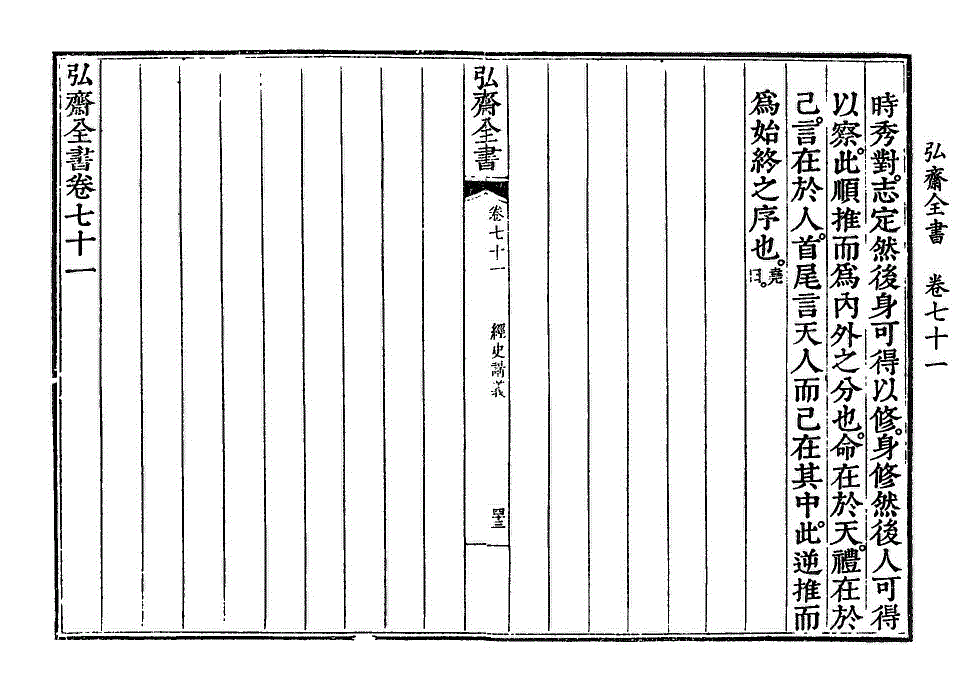 弘齋全書　卷七十一
時秀對。志定然後身可得以修。身修然後人可得
以察。此順推而爲內外之分也。命在於天。禮在於
己。言在於人。首尾言天人而己在其中。此逆推而
爲始終之序也。堯曰。
弘齋全書
卷七十一
經史講義
四十三
弘齋全書卷七十一